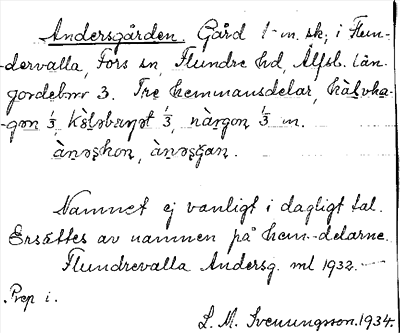 Andersgården. Gård 1 m. sk. i Flun-
dervalla, Fors sn, Flundre hd, Älfsb. län.
Jordebnr 3. Tre hemmansdelar,
⅓, ⅓, ⅓ m.
ànəʂkon, ànəʂgan.
Namnet ej vanligt i dagligt tal.
Ersättes av namnen på hem.-delarne.
Flundrevalla Andersg. ml 1932.
Prep i.
L. M. Svenungsson. 1934.